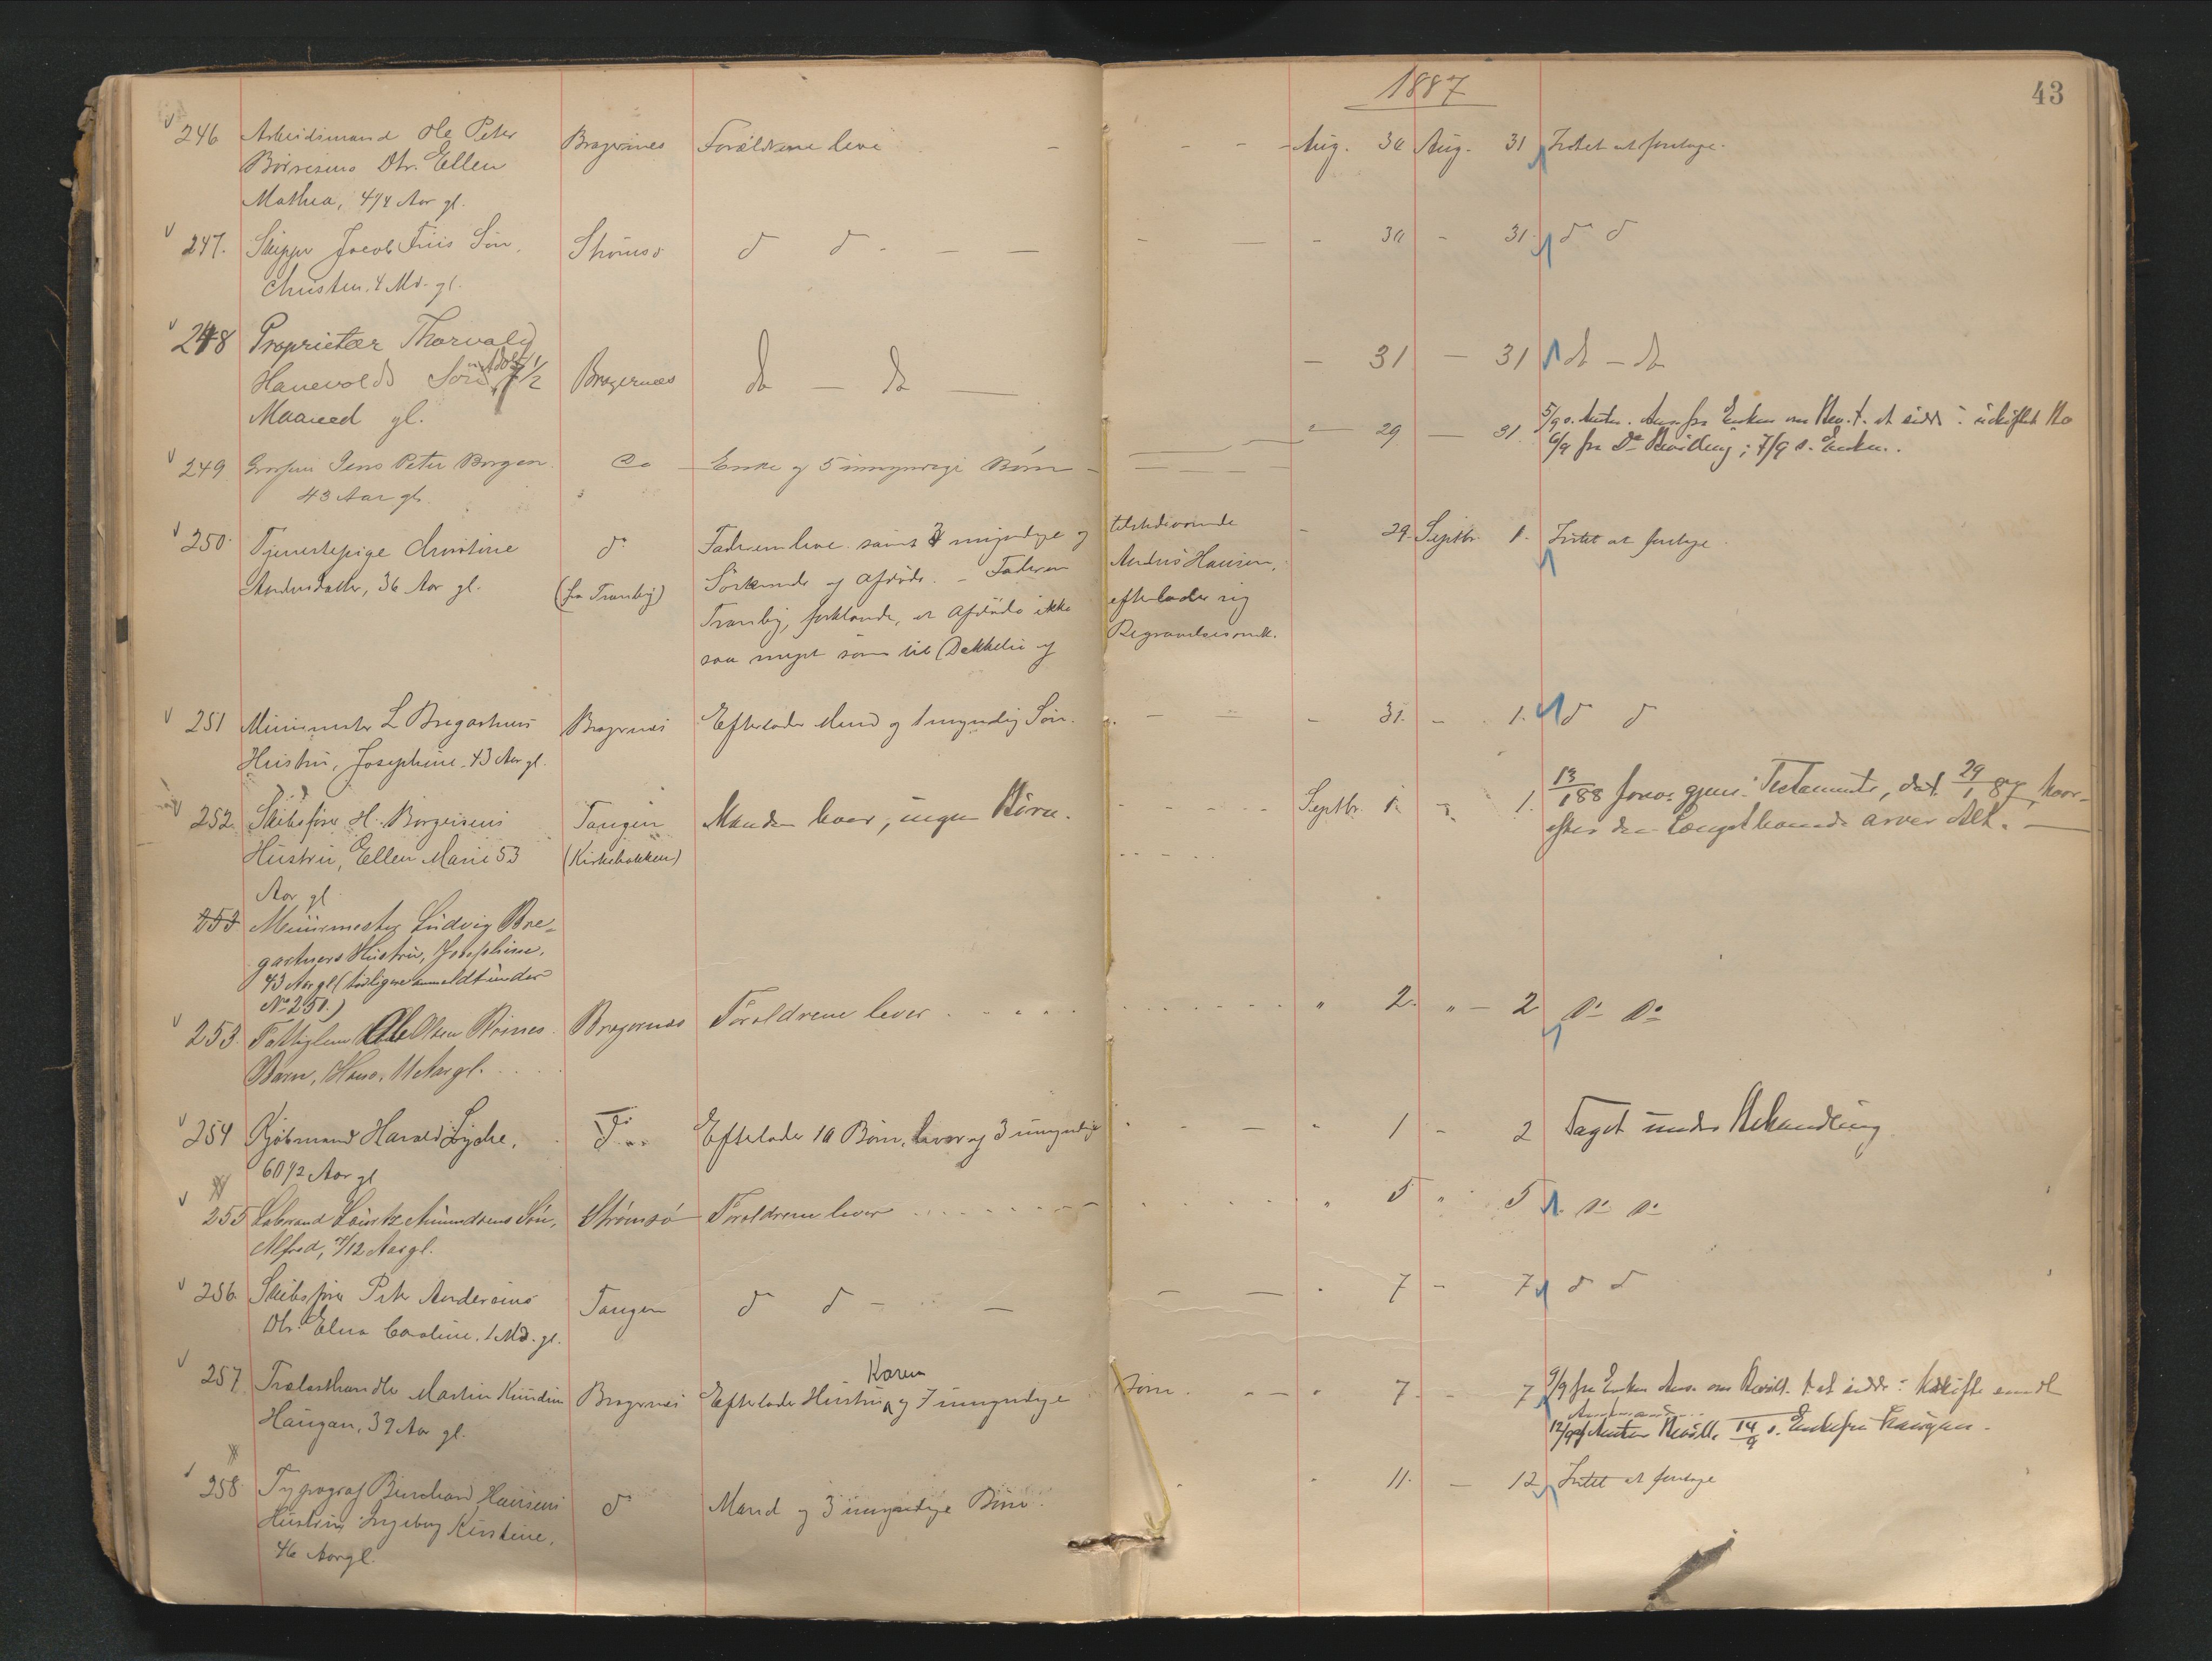 1887
43
246 Arbeidsmand Ole Peter Bragernæs Forældrene leve - - - - Aug. 30 Aug. 31 Intet at foretage.
Børresens Dtr. Ellen
Mathea, 4 1/4 Aar gl.
247. Skipper Jacob Friis Søn, Strømsø d d - - - - 30 - 31 d d
Christen, 4 Md. gl.
248 Proprietær Thorvald
Hanevolds Søn Adolf 1/2 Bragernæs do - do - 31 - 31 do - do
Maaned gl.
249 Jens Peter Borgen do Enke og 5 umyndige Børn - 29 - 31 5/9 s. Enken
43 Aar gl. 6/9 fra Do Bevilling; 7/9 s. Enken.
250. Tjenestepige Christine do Faderen lever samt 3 myndige og tilstedeværende - 29. Septbr. 1. Intet at foretage.
Andersdatter, 36 Aar gl. (fra Tranby) Søskende af Afdøde. - Faderen Anders Hansen,
Tranby, forklarede, at Afdøde ikke efterlader sig
saa meget som til Dækkelse af Begravelsesomk.
251 Muurmester L Bregartners Bragernæs Efterlader Mand og 1 myndig Søn. - - - 31. - 1. d d
Hustru, Josephine, 43 Aar gl.
252. Skibsfører H. Borgersens Tangen Manden lever, ingen Børn. - - - Septbr. 1. - 1. 13/1 88 gjens. Testamente, dat. 29/1 87, hvor-
Hustru, Ellen Marie 53 (Kirkebakken) efter den Længstlevende arver Alt.
Aar gl.
253 Muurmester Ludvig Bre-
gartners Hustru, Josephine,
43 Aar gl (tidligere anmeldt under
No 251.)
253. Fattiglem Ole Olsen Bragernæs Forældrene lever - - - " 2. " - 2 do do
Barn, Hans, 11 Aar gl.
254 Kjøbmand Harald Lyche, do Efterlader 10 Børn, hvoraf 3 umyndige - - - 1 - 2 Taget under Behandling
60 1/2 Aar gl
255 Lauritz Amundsens Søn, Strømsø Forældrene lever - - - " 5 " 5 do do
Alfred, /12 Aar gl.
256 Skibsfører Peter Andersens Tangen d d - - - - 7 - 7 d d
Dtr. Elna Caroline, 1 Md. gl.
257. Trælasthandler Martin Knudsen Bragernæs Efterlader Hustru Karen og 7 umyndige Børn. - - - 7. - 7 9/9 fra Enken
Haugan, 39 Aar gl. 12/9 14/9 s. Enkefru Haugan.
258. Typograf Hansens d Mand og 3 umyndige Børn. - 11. - 12 Intet at foretage
Hustru Ingeborg Kirstine,
46 Aar gl.